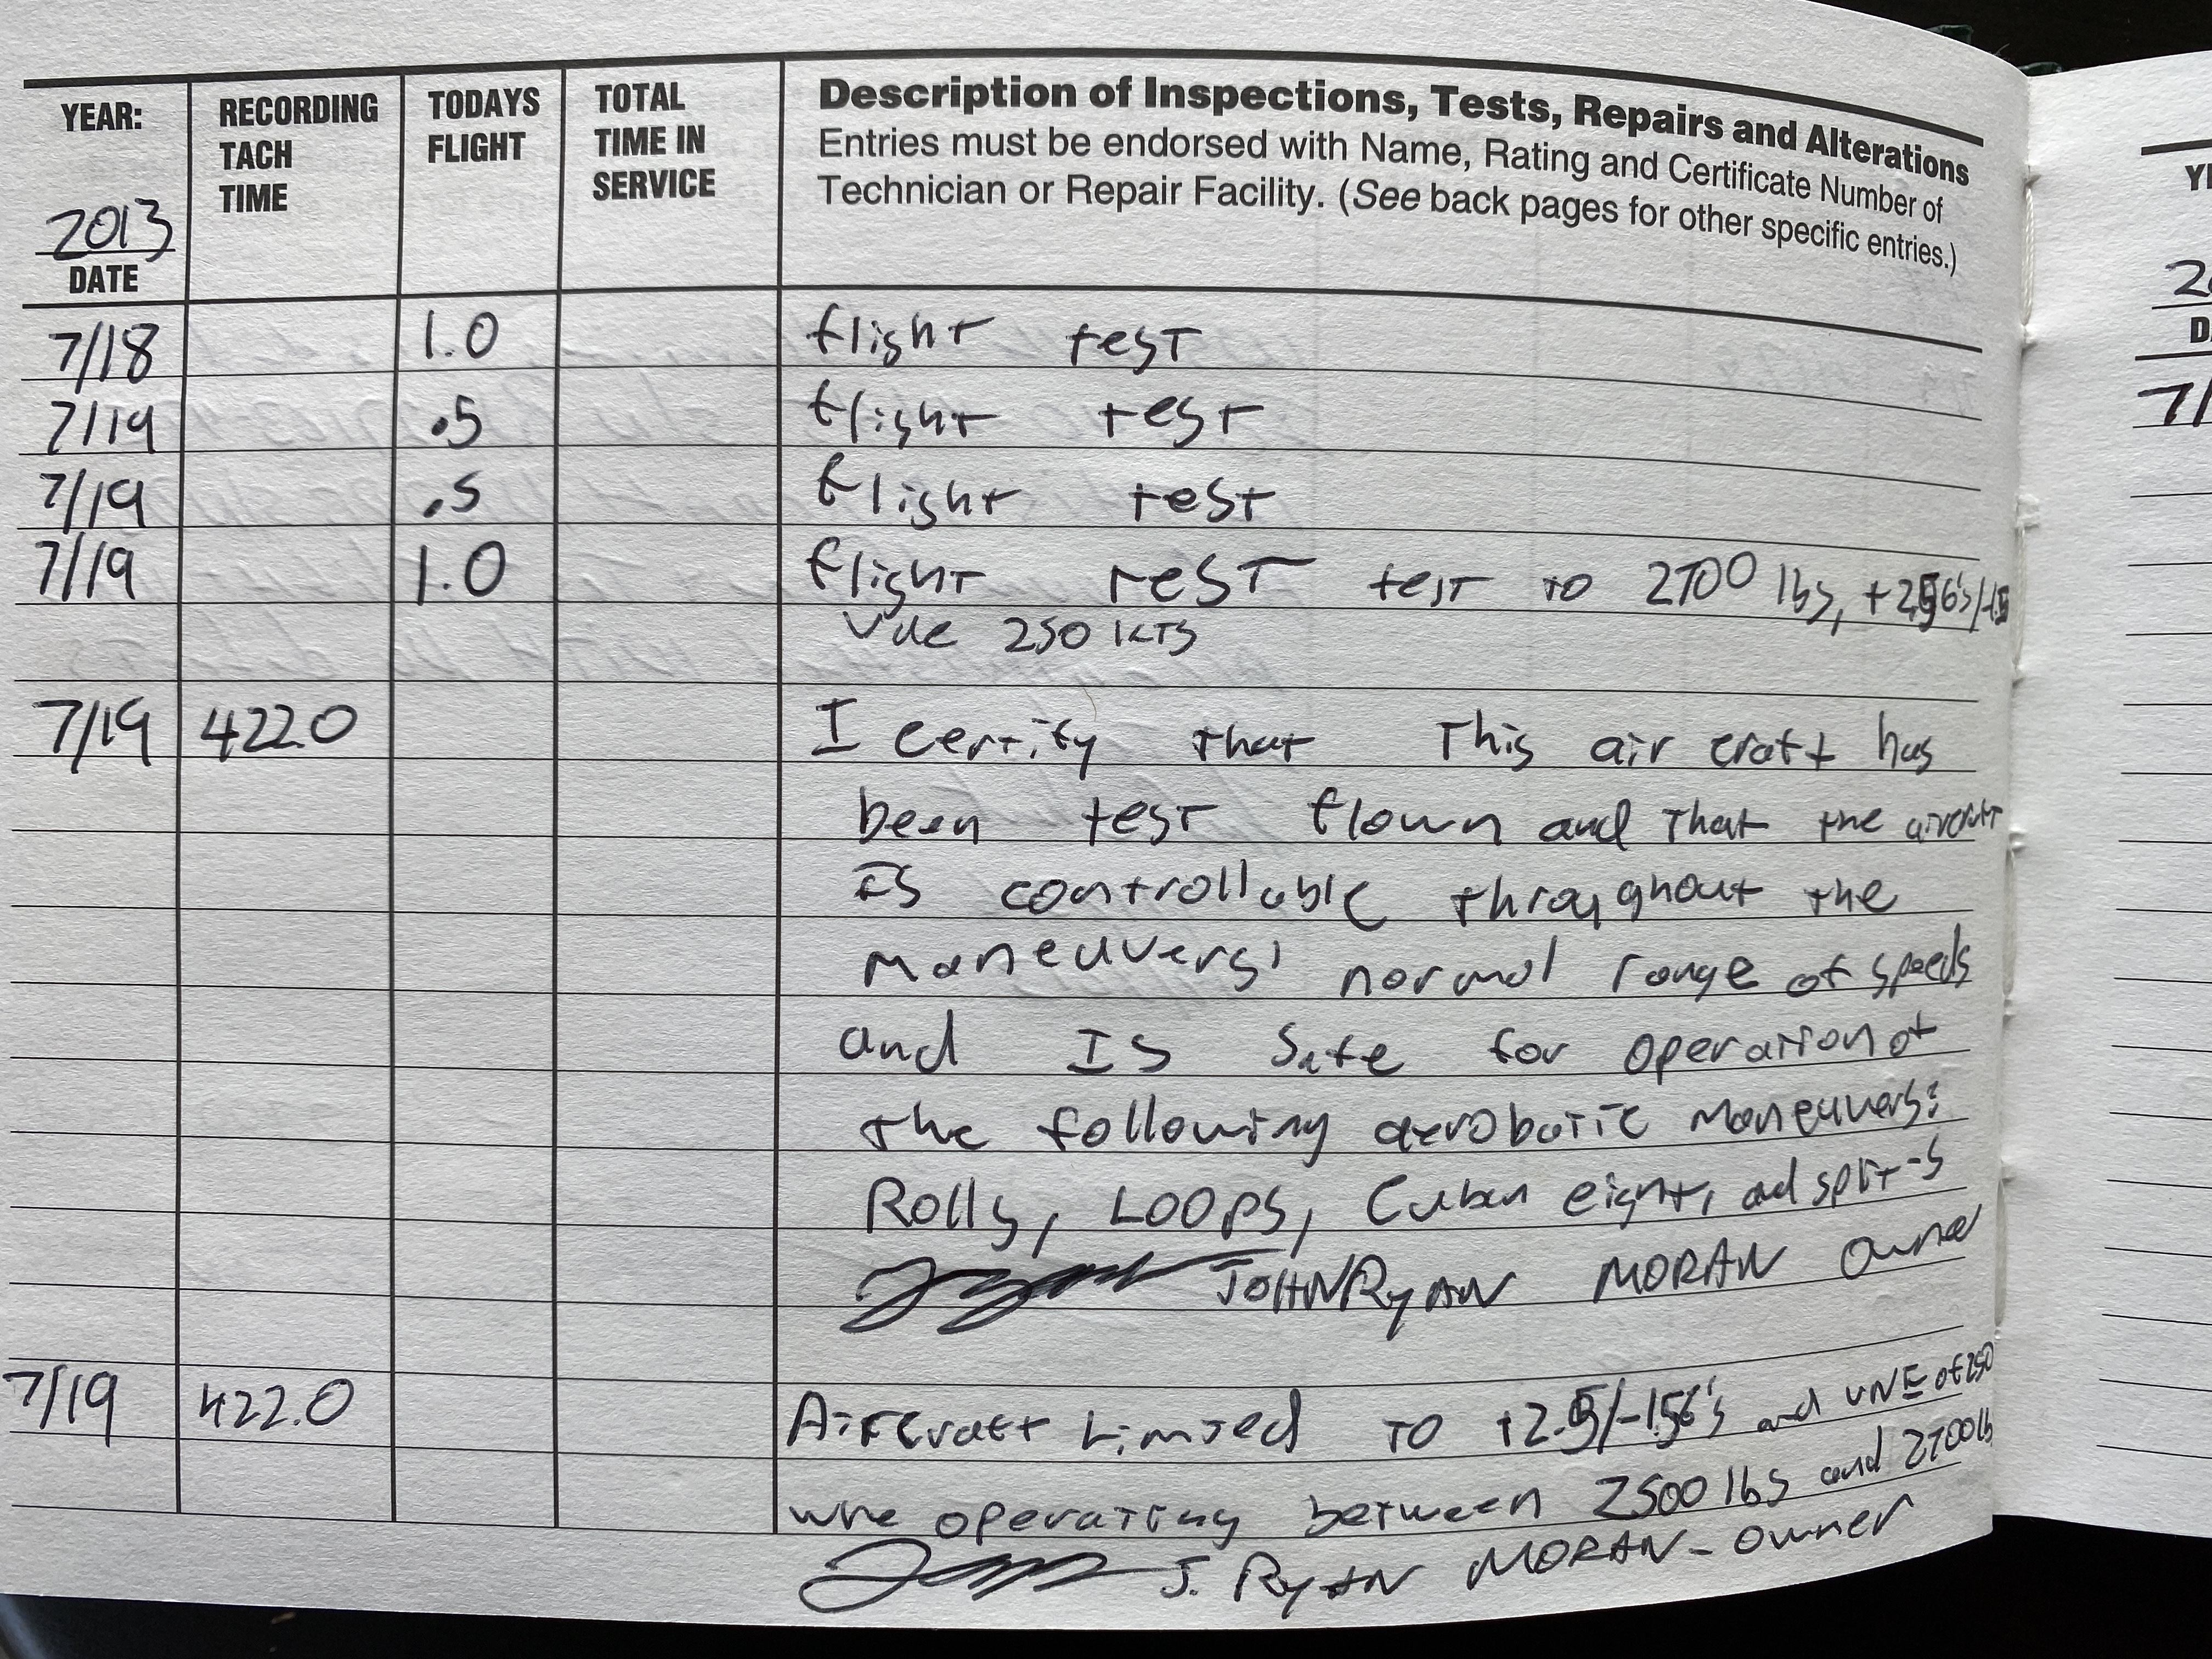 YEAR: RECORDING TACH TIME TODAYS FLIGHT TOTAL TIME IN SERVICE
Description of Inspections, Tests, Repairs and Alterations
Entries must be endorsed with Name, Rating and Certificate Number of
Technician or Repair Facility. (See back pages for other specific entries.)
2013
DATE
7/18 1.0 flight test
7/19 .5 flight test
7/19 .5 flight test
7/19 1.0 flight test test to 2700 lbs, +2.5G's/-1.5
Vne 250 KTS
7/19 422.0 I certify that this air craft has
been test flown and that the aircraft
is controllable throughout the
maneuvers' normal range of speeds
and is safe for operation of
the following aerobatic maneuvers:
Rolls, LOOPS, Cuban eight, and split-s
JOHN RYAN MORAN owner
7/19 422.0 Aircraft Limited to +2.5/-1.5G's and VNE of 250
operating between 2500 lbs and 2700 lb
J. RYAN MORAN - owner
YE
D
7/